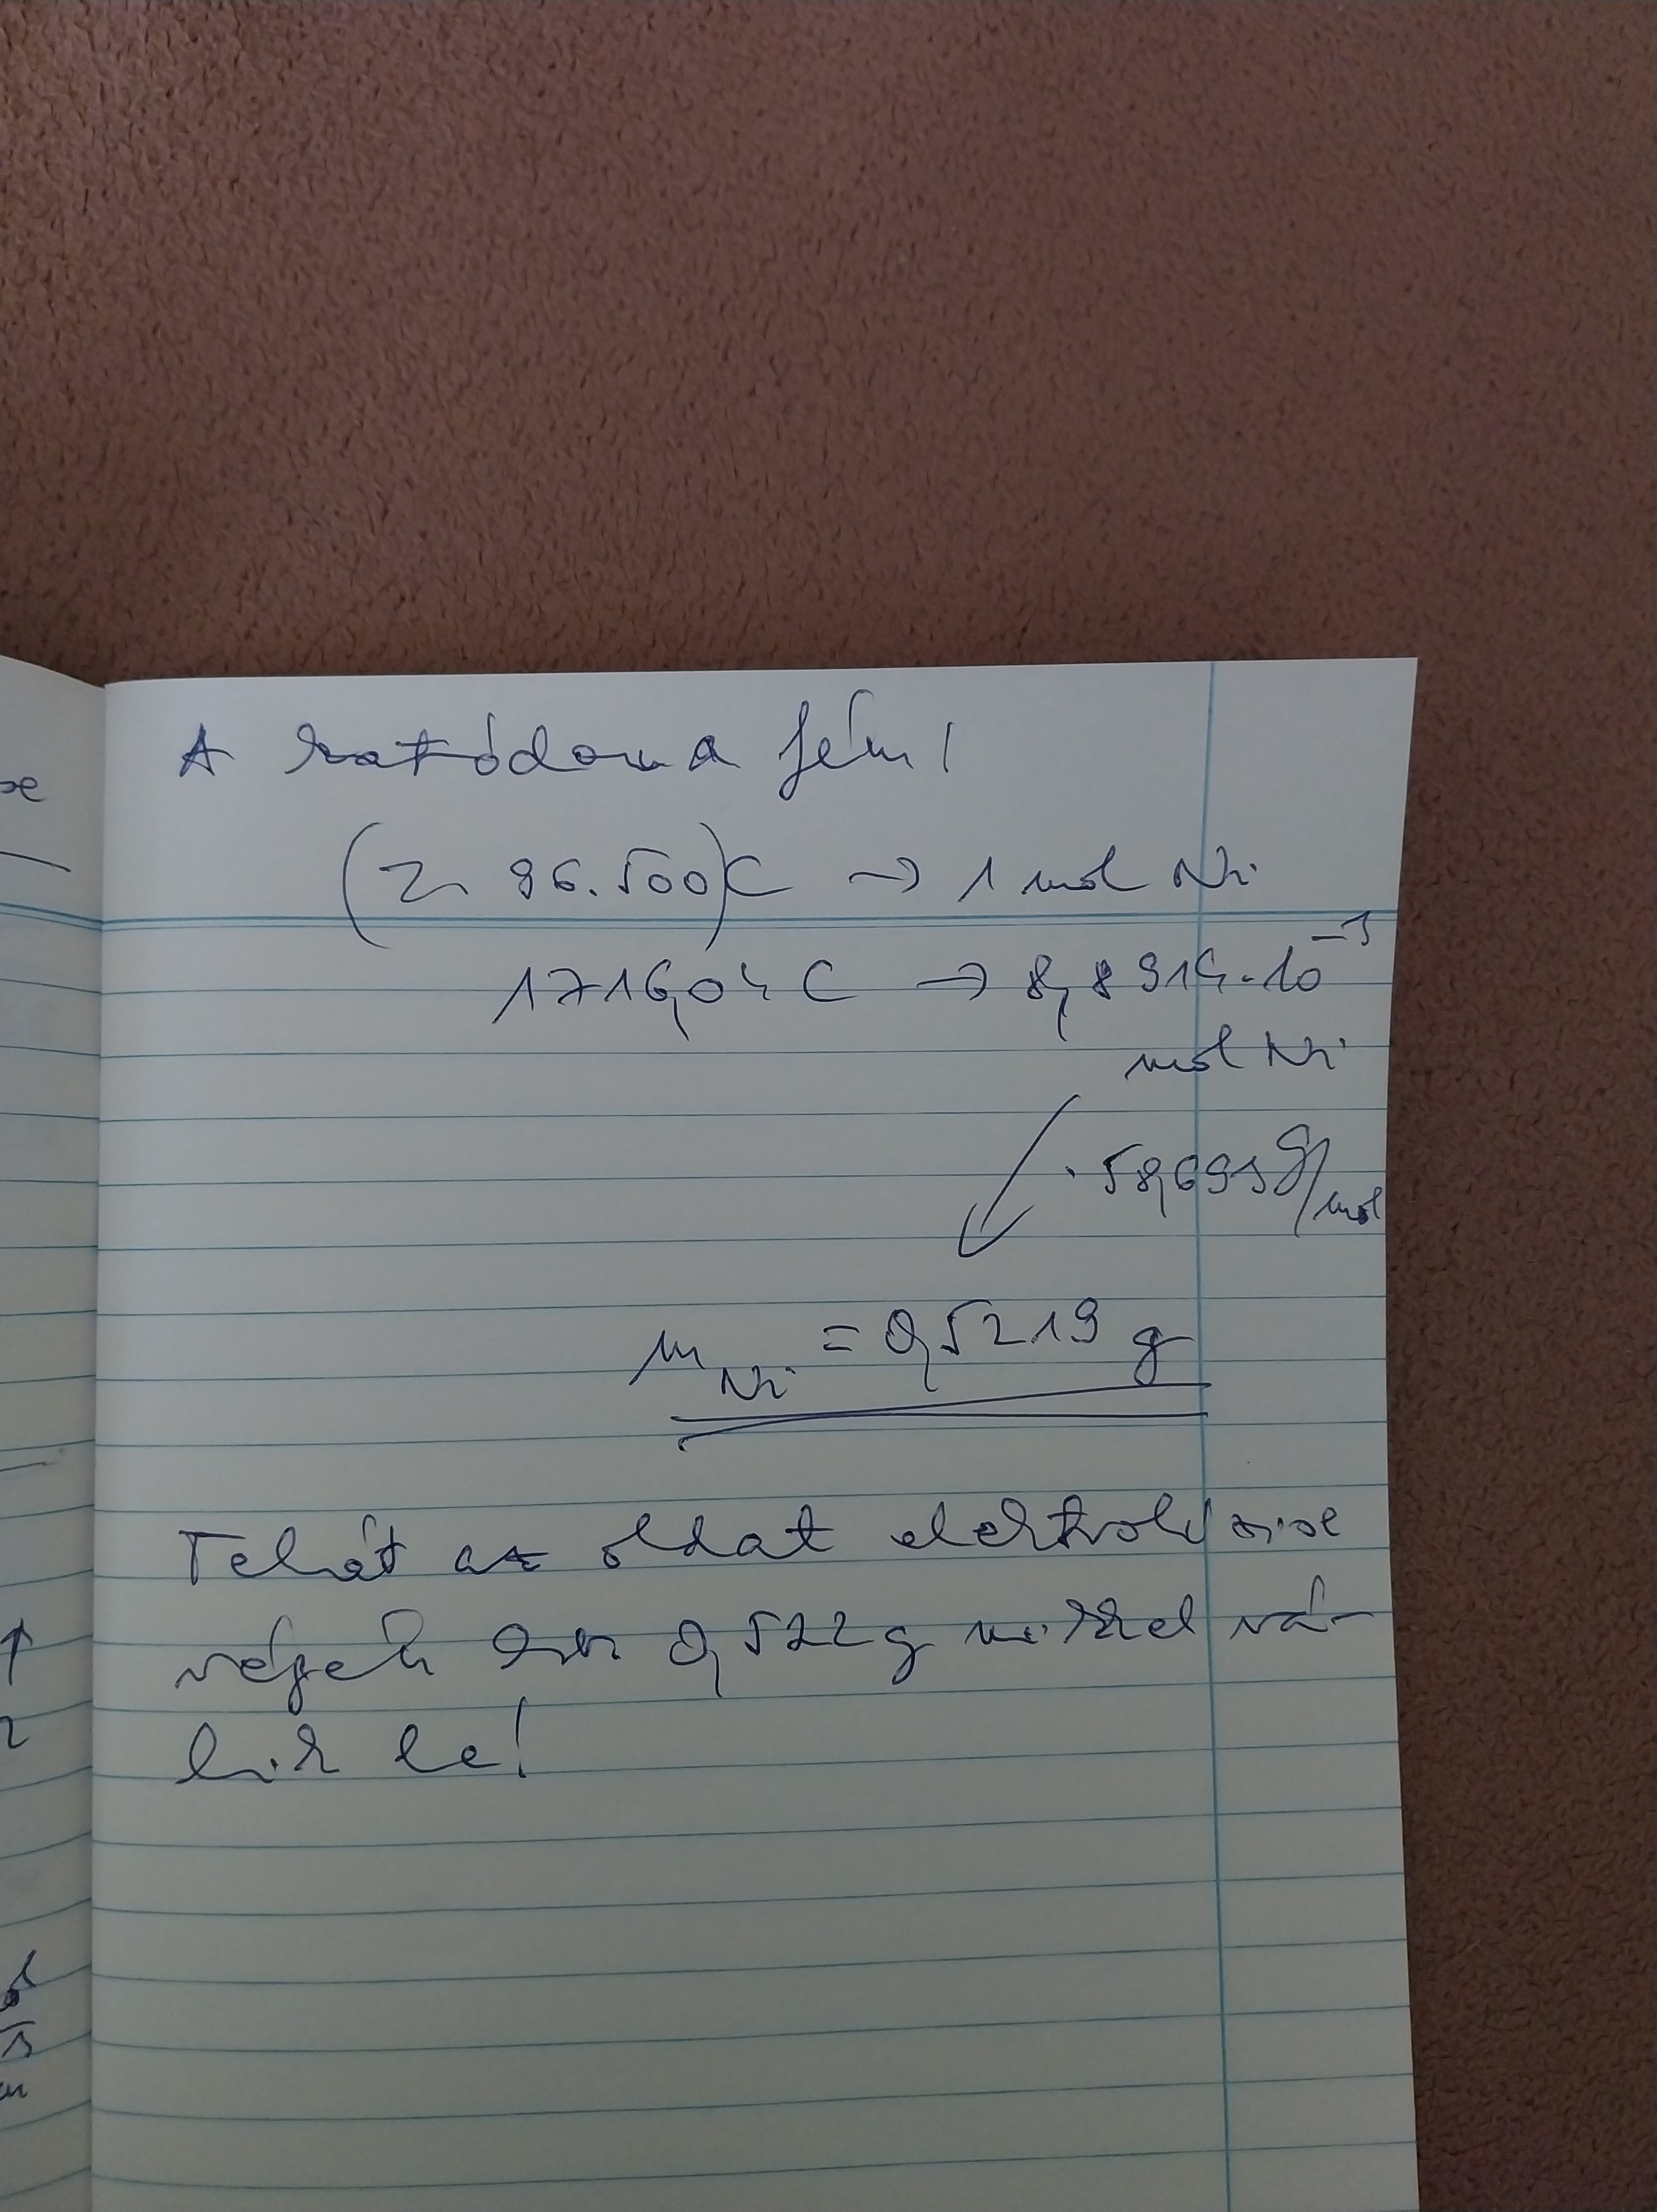 A katódon a fém!
(2 · 96.500)C → 1 mol Ni
1716,04 C → 8,8914·10⁻³
mol Ni
· 58,693 g/mol
m Ni = 0,5219 g
Tehát az oldat elektrolízise
végén 0,522 g nikkel vá-
lik le!